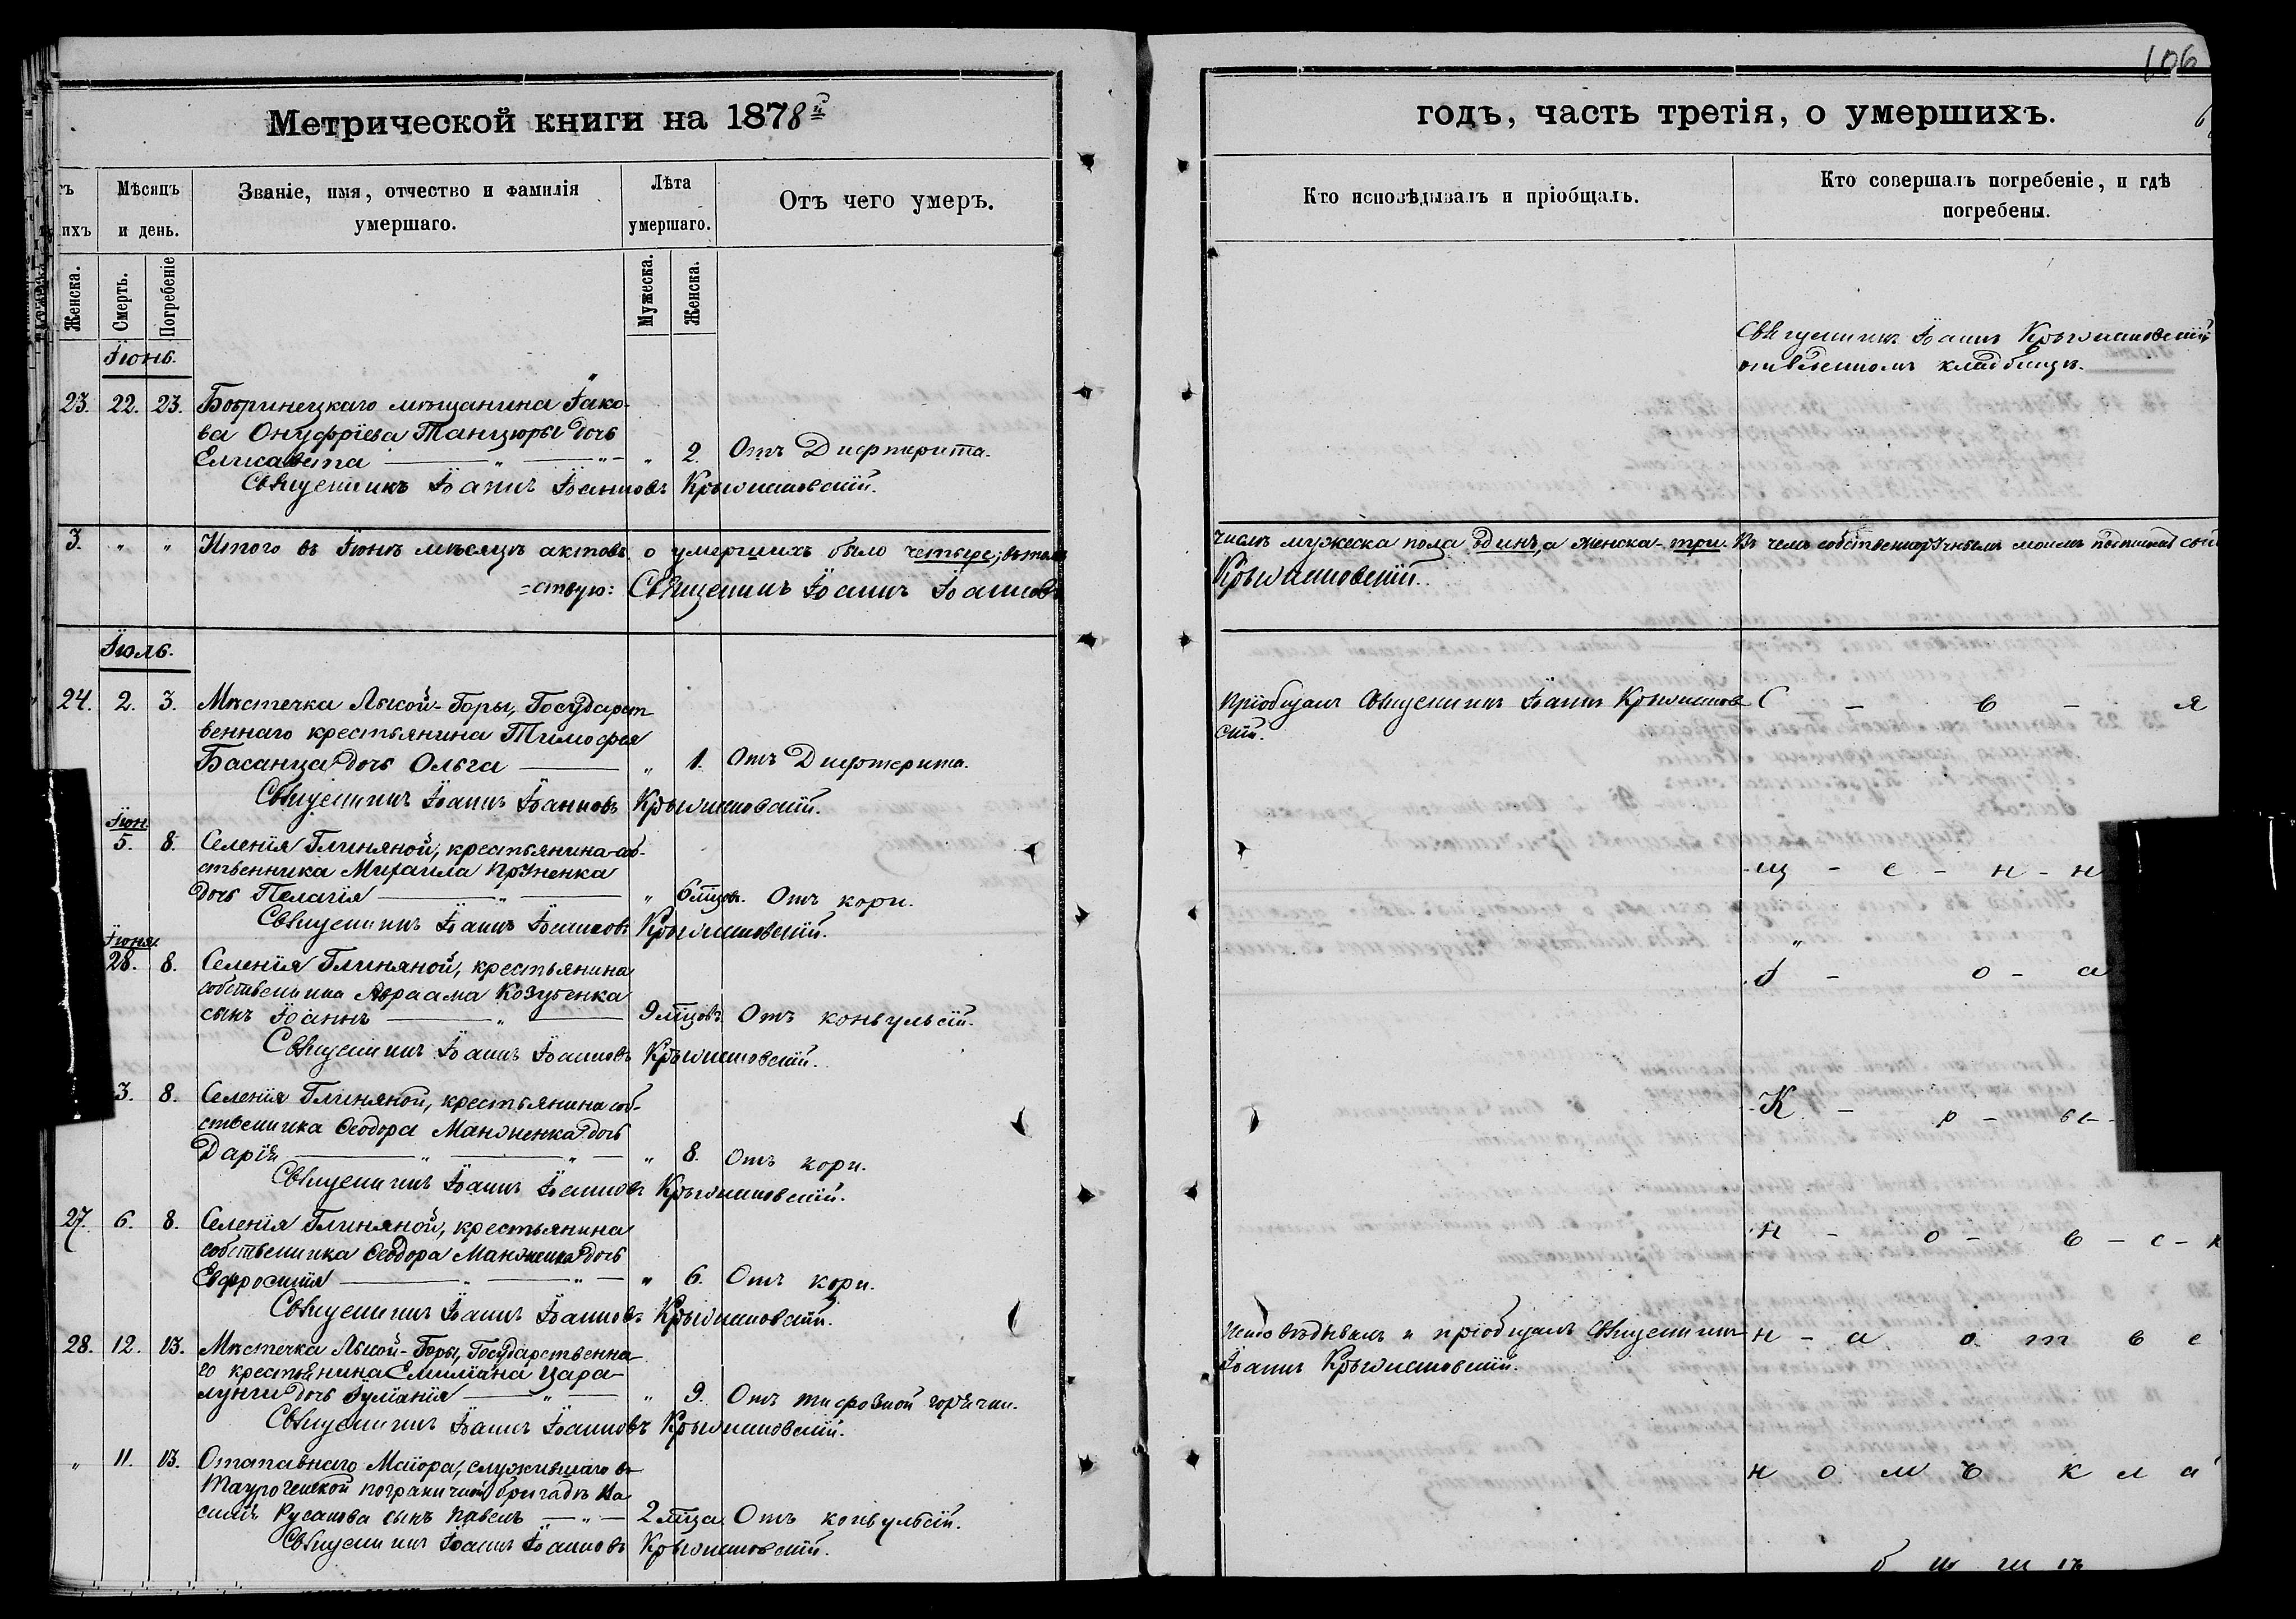 106
Метрической книги на 1878й
годъ, часть третія, о умершихъ.
Мѣсяцъ и день.
Званіе, имя, отчество и фамилія умершаго.
Лѣта умершаго.
Отъ чего умеръ.
Кто исповѣдывалъ и пріобщалъ.
Кто совершалъ погребеніе, и гдѣ погребены.
Женска.
Смерть.
Погребеніе
Мужеска.
Женска.
Священникъ Іоаннъ
кладбищѣ.
Іюнь.
23. 22. 23. Бобринецкаго мѣщанина Іако-
ва Онуфріева Танцюры дочь
Елисавета — " — " — " 2. Отъ Дифтерита.
Священникъ Іоаннъ Іоанновъ
3. " " Итого въ Іюнѣ мѣсяцѣ актовъ о умершихъ было четыре; въ томъ
числѣ мужеска пола одинъ, а женска - три. Въ чемъ собственноручнымъ моимъ подписомъ сви
=ствую: Священникъ Іоаннъ Іоанновъ
Іюль.
24. 2. 3. Мѣстечка Лысой-Горы, Государст
веннаго крестьянина Тимофея
Басанца дочь Ольга — " 1. Отъ Дифтерита.
Священникъ Іоаннъ Іоанновъ
Пріобщалъ Священникъ Іоаннъ
С - в - я
Іюн.
5. 8. Селенія Глиняной, крестьянина-соб-
ственника Михаила
дочь Пелагія — " — " 6 мцов. Отъ кори.
Священникъ Іоаннъ Іоанновъ
щ - е - н - н
Іюня.
28. 8. Селенія Глиняной, крестьянина
собственника Авраама Козубенка
сынъ Іоаннъ — " — 9 мцовъ. Отъ конвульсій.
Священникъ Іоаннъ Іоанновъ
І - о - а
3. 8. Селенія Глиняной, крестьянина соб-
ственника Ѳеодора дочь
Дарія — " — " — " 8. Отъ кори.
Священникъ Іоаннъ Іоанновъ
К - р - ы -
27. 6. 8. Селенія Глиняной, крестьянина
собственника Ѳеодора дочь
Евфросинія — " — " — " 6. Отъ кори.
Священникъ Іоаннъ Іоанновъ
н - о - в - с - к
28. 12. 13. Мѣстечка Лысой-Горы, Государственна-
го крестьянина Емиліана Цара-
лунги дочь Іуліанія — " — " 9. Отъ тифозной горячки.
Священникъ Іоаннъ Іоанновъ
Исповѣдывалъ и пріобщалъ Священникъ
Іоаннъ
н - а о т в е
" 11. 13. Отставнаго Маіора, служившаго въ
пограничной бригадѣ Ва
силія Русанова сынъ Павелъ — " — 2 мца. Отъ конвульсій.
Священникъ Іоаннъ Іоанновъ
н о м ъ к л а